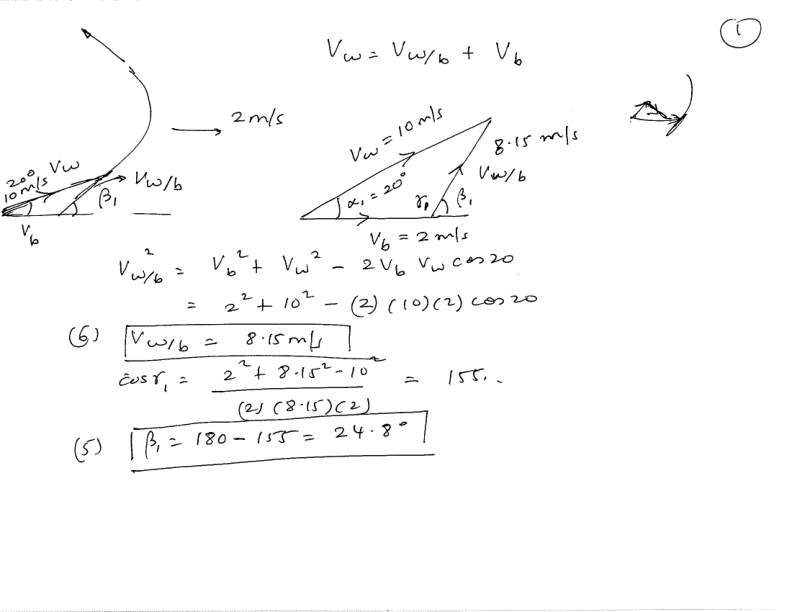 1
V_w = V_w/b + V_b
2 m/s
20°
10 m/s
V_w
V_w/b
β₁
V_b
V_w = 10 m/s
8.15 m/s
V_w/b
α₁ = 20°
γ₁
β₁
V_b = 2 m/s
V_w/b² = V_b² + V_w² - 2 V_b V_w cos 20
= 2² + 10² - (2) (10) (2) cos 20
(6) V_w/b = 8.15 m/s
cos γ₁ = (2² + 8.15² - 10²) / ((2) (8.15) (2)) = 155..
(5) β₁ = 180 - 155 = 24.8°